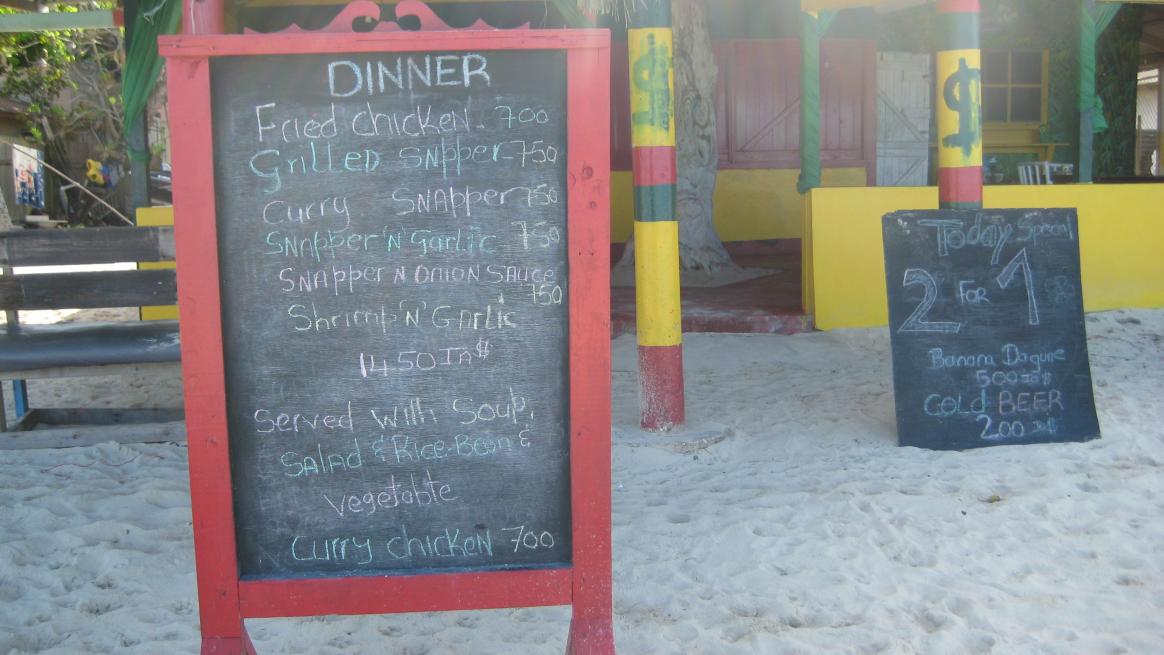 DINNER
Fried chicken - 700
Grilled SNpper - 750
Curry SNApper 750
SNApper 'N' Garlic 750
SNApper N ONION SAuce
750
Shrimp 'N' Garlic
1450 JA$
Served with Soup,
SALAd & Rice-Bean &
vegetable
curry chicken 700
Today Special
2 FOR 1
Banana Daguire
500 JA$
COLD BEER
200 JA$
$
$